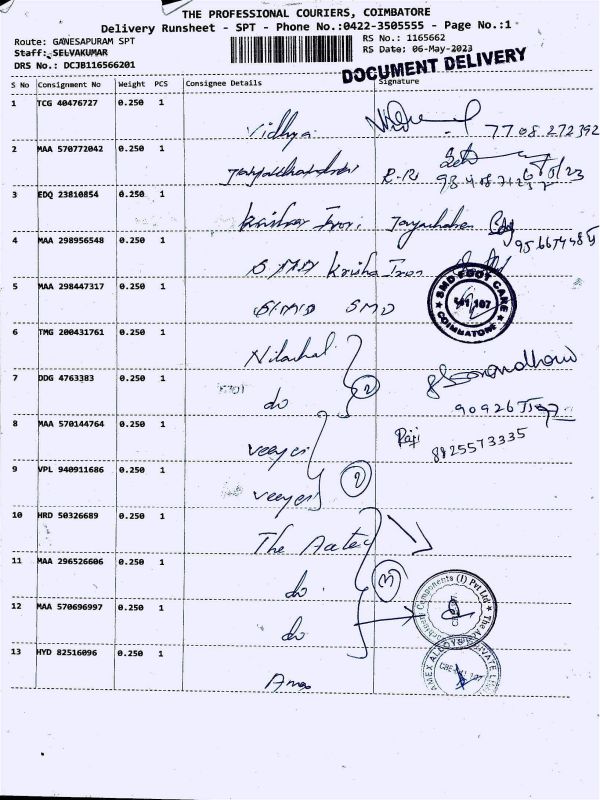 THE PROFESSIONAL COURIERS, COIMBATORE
Delivery Runsheet - SPT - Phone No.:0422-3505555 - Page No.:1
Route: GANESAPURAM SPT
RS No.: 1165662
Staff: SELVAKUMAR
RS Date: 06-May-2023
DRS No.: DCJB116566201
DOCUMENT DELIVERY
S No Consignment No Weight PCS Consignee Details Signature
1 TCG 40476727 0.250 1
Vidhya
7708272392
2 MAA 570772042 0.250 1
3 EDQ 23810854 0.250 1
4 MAA 298956548 0.250 1
SMD Krisha Iron
5 MAA 298447317 0.250 1
SMD SMD
SMD FOOT CARE
641 107
COIMBATORE
6 TMG 200431761 0.250 1
Nilachal
7 DDG 4763383 0.250 1
do
2
8 MAA 570144764 0.250 1
veeyes
Raji
8825573335
9 VPL 940911686 0.250 1
veeyes
2
10 HRD 50326689 0.250 1
The
11 MAA 296526606 0.250 1
do
3
12 MAA 570696997 0.250 1
do
Components (I) Pvt Ltd
13 HYD 82516096 0.250 1
Amex